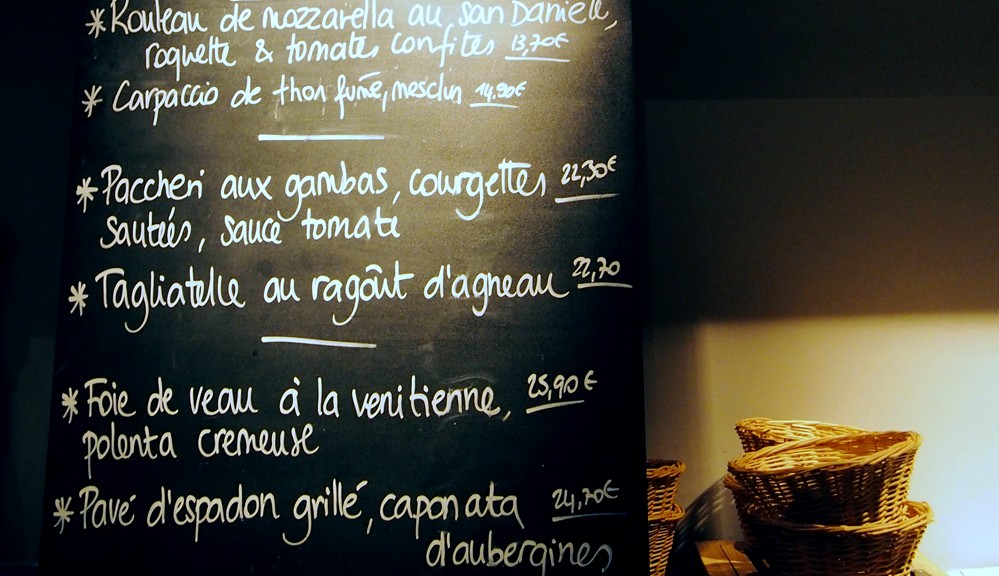 *Rouleau de mozzarella au San Daniele,
roquette & tomates confites 13,70€
* Carpaccio de thon fumé, mesclun 14,90€
*Paccheri aux gambas, courgettes 22,30€
sautées, sauce tomate
* Tagliatelle au ragoût d'agneau 22,70
* Foie de veau à la venitienne, 25,90€
polenta crémeuse
* Pavé d'espadon grillé, caponata 24,70€
d'aubergines